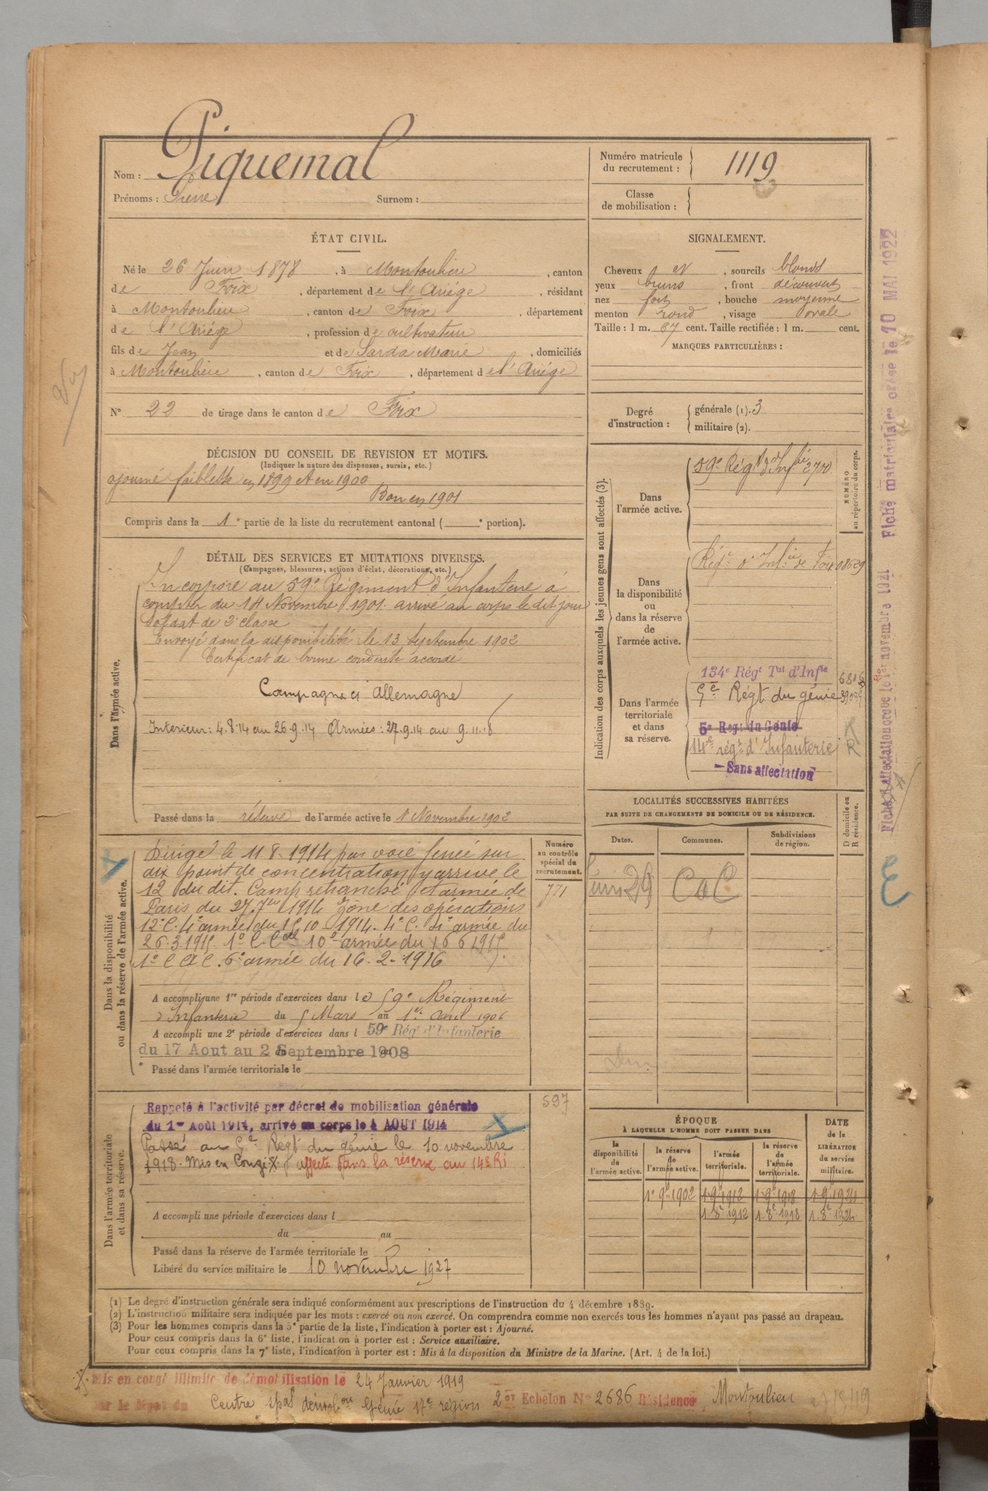 Nom : Piquemal
Prénoms : Pierre Surnom :
Numéro matricule du recrutement : 1119
Classe de mobilisation :
ÉTAT CIVIL.
Né le 26 Juin 1878, à Montoulieu, canton
de Foix, département de l'Ariège, résidant
à Montoulieu, canton de Foix, département
de l'Ariège, profession de cultivateur
fils de Jean et de Sarda Marie, domiciliés
à Montoulieu, canton de Foix, département de l'Ariège
N° 22 de tirage dans le canton de Foix
SIGNALEMENT.
Cheveux et, sourcils blonds
yeux bruns, front découvert
nez fort, bouche moyenne
menton rond, visage ovale
Taille : 1 m. 67 cent. Taille rectifiée : 1 m. cent.
MARQUES PARTICULIÈRES :
Degré d'instruction : générale (1). 3
militaire (2).
DÉCISION DU CONSEIL DE REVISION ET MOTIFS.
(Indiquer la nature des dispenses, sursis, etc.)
ajourné faiblesse en 1899 et en 1900
Bon en 1901
Compris dans la 1e partie de la liste du recrutement cantonal ( e portion).
DÉTAIL DES SERVICES ET MUTATIONS DIVERSES.
(Campagnes, blessures, actions d'éclat, décorations, etc.)
Dans l'armée active.
Incorporé au 59e Régiment d'Infanterie à
compter du 14 Novembre 1901 arrivé au corps le dit jour
Soldat de 2e classe
Envoyé dans la disponibilité le 13 Septembre 1902
Certificat de bonne conduite accordé
Campagne c/ Allemagne
Intérieur : 4.8.14 au 26.9.14 Armées : 27.9.14 au 9.11.18
Passé dans la réserve de l'armée active le 1 Novembre 1902
Indication des corps auxquels les jeunes gens sont affectés (3).
NUMÉRO au répertoire du corps.
Dans l'armée active.
59e Régt d'Infie 2700
Dans la disponibilité ou dans la réserve de l'armée active.
Régt d'Infie de Foix
Dans l'armée territoriale et dans sa réserve.
134e Régt Tal d'Infie
Régt du génie
5e Reg. du Génie
14e régt d'Infanterie
R
Sans affectation
LOCALITÉS SUCCESSIVES HABITÉES
PAR SUITE DE CHANGEMENTS DE DOMICILE OU DE RÉSIDENCE.
Dates. Communes. Subdivisions de région. D domicile ou R résidence.
Juin 29 CaC
Dans la disponibilité ou dans la réserve de l'armée active.
Numéro au contrôle spécial du recrutement.
771
Dirigé le 11 8. 1914 par voie ferrée sur
dix point de concentration y arrive le
12 du dit. Camp retranché et armée de
Paris du 27.7bre 1914 zone des opérations
12e C. 4e armée du 15 10 1914. 4e C. 2e armée du
26.3.1915 1e C. Cal 10e armée du 16 6 1915.
1e C A C. 6e armée du 16-2-1916
A accompli une 1re période d'exercices dans le 59e Régiment
d'Infanterie du 5 Mars au 1er Avril 1906
A accompli une 2e période d'exercices dans l 59e Rég d'Infanterie
du 17 Aout au 2 Septembre 1908
Passé dans l'armée territoriale le
Dans l'armée territoriale et dans sa réserve.
597
Rappelé à l'activité par décret de mobilisation générale
du 1er Août 1914, arrivé au corps le 4 AOUT 1914
Passé au 2e Régt du génie le 10 novembre
1918. Mis en Congé X affecté dans la réserve au 14e RI
A accompli une période d'exercices dans l
du au
Passé dans la réserve de l'armée territoriale le
Libéré du service militaire le 10 novembre 1927
ÉPOQUE
À LAQUELLE L'HOMME DOIT PASSER DANS
la disponibilité de l'armée active. la réserve de l'armée active. l'armée territoriale. la réserve de l'armée territoriale. DATE de la LIBÉRATION du service militaire.
1e 9bre 1902 1.9bre 1912 1.9bre 1918 1.9bre 1924
1.8bre 1912 1.8bre 1918 1.8bre 1924
(1) Le degré d'instruction générale sera indiqué conformément aux prescriptions de l'instruction du 4 décembre 1889.
(2) L'instruction militaire sera indiquée par les mots : exercé ou non exercé. On comprendra comme non exercés tous les hommes n'ayant pas passé au drapeau.
(3) Pour les hommes compris dans la 5e partie de la liste, l'indication à porter est : Ajourné.
Pour ceux compris dans la 6e liste, l'indication à porter est : Service auxiliaire.
Pour ceux compris dans la 7e liste, l'indication à porter est : Mis à la disposition du Ministre de la Marine. (Art. 4 de la loi.)
X Mis en congé illimité de démobilisation le 24 Janvier 1919
par le dépôt du Centre spal démobon Génie 17e région 2e Echelon N° 2686 Résidence Montoulieu
Fiche d'affectation créée le 1er novembre 1921 Fiche matriculaire créée le 10 MAI 1922